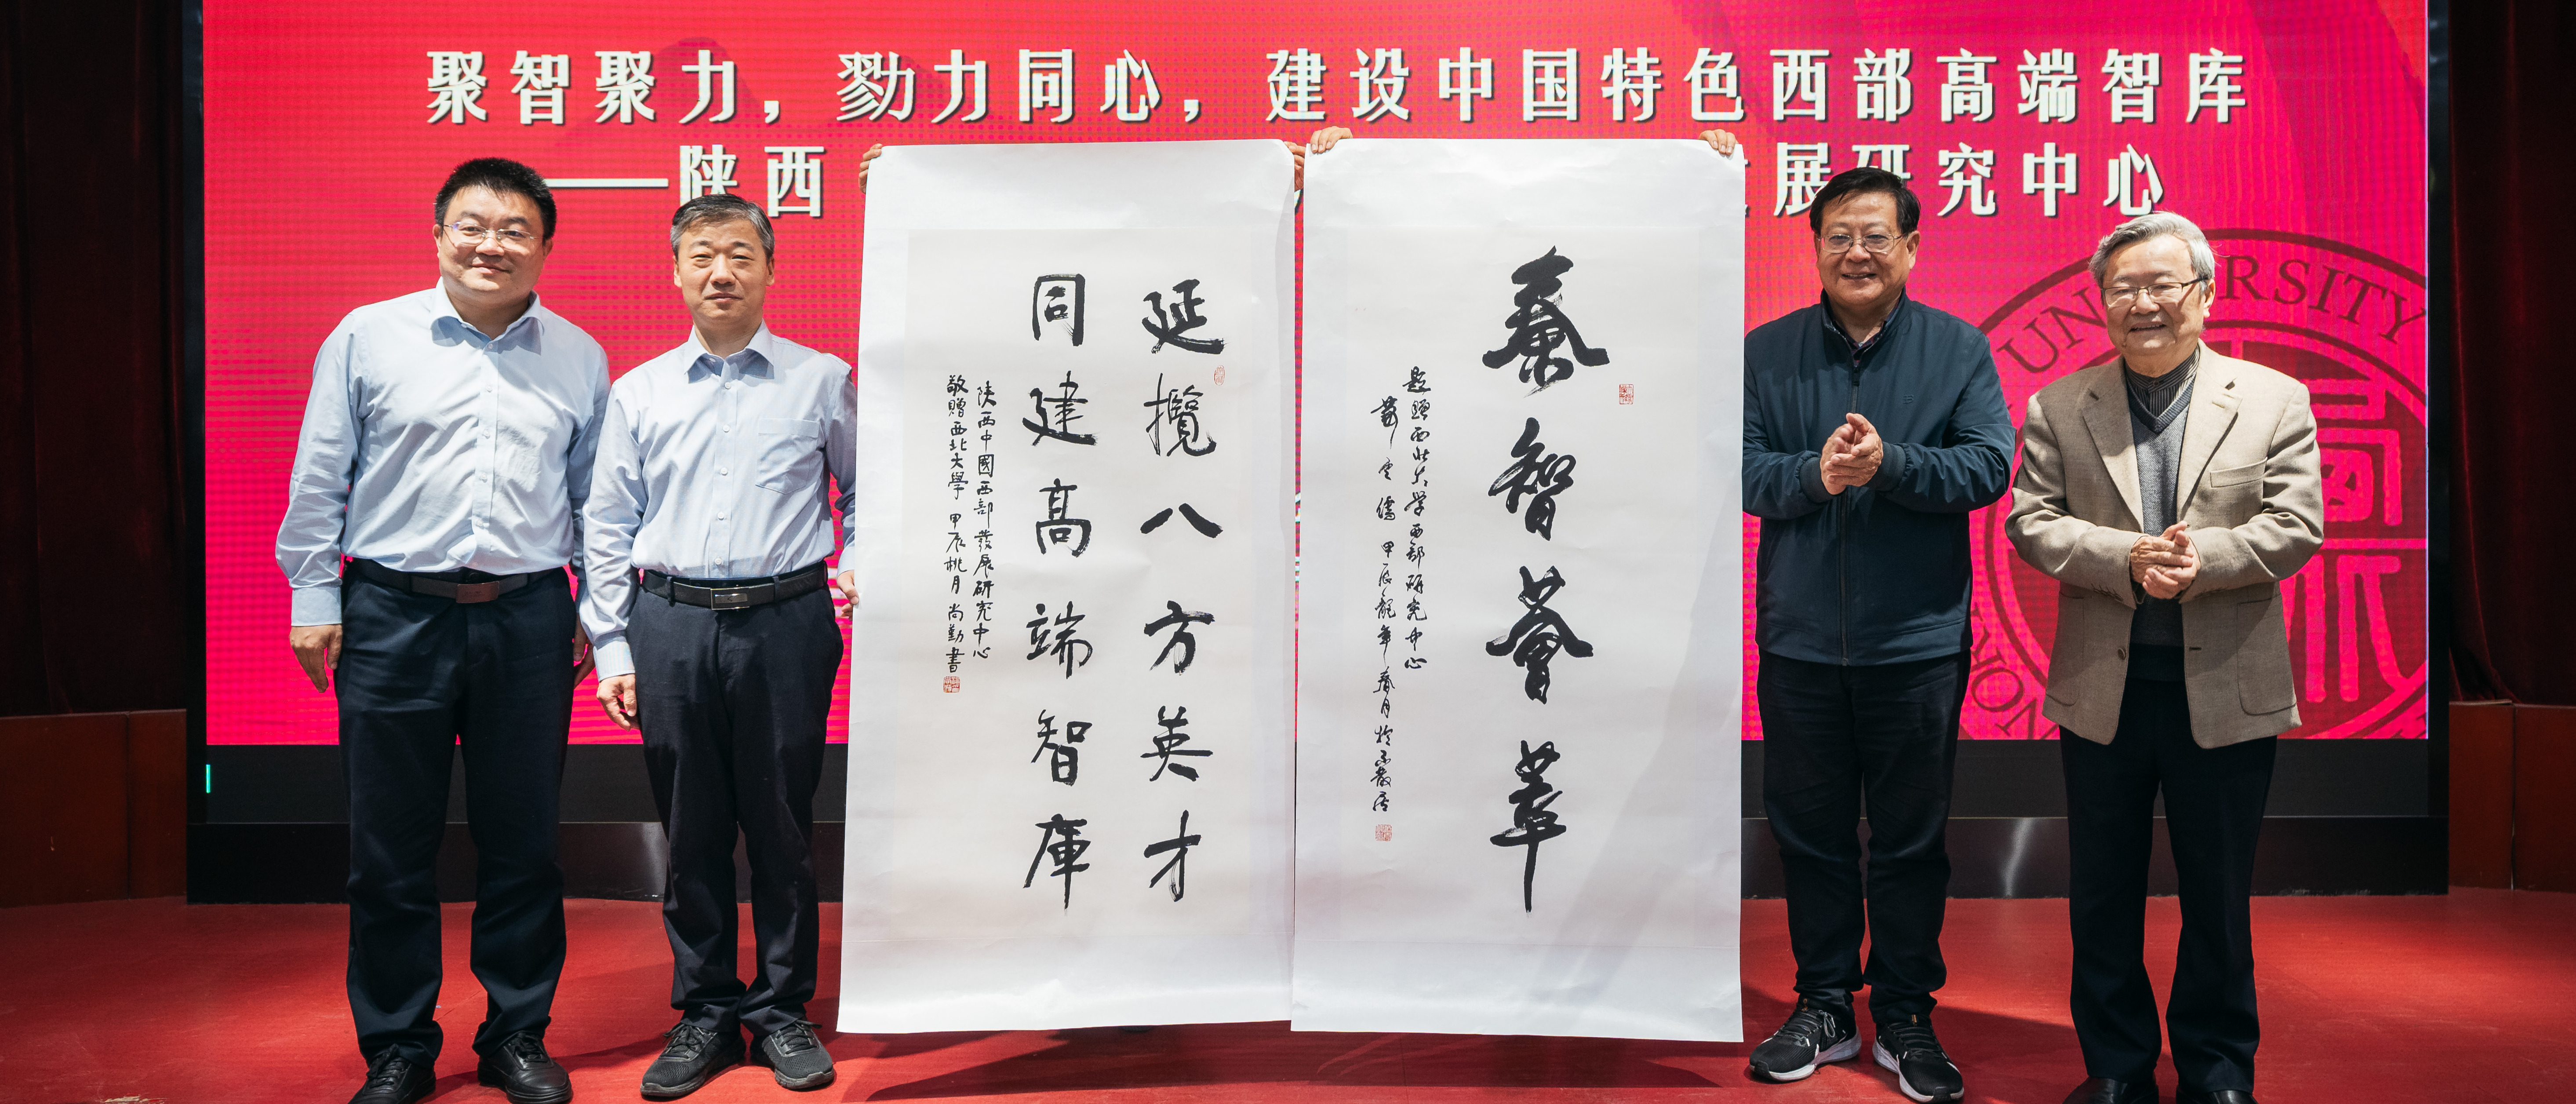 聚智聚力，勠力同心，建设中国特色西部高端智库
——陕西
展研究中心
UNIVERSITY
延攬八方英才
同建高端智庫
陕西中國西部發展研究中心
敬贈西北大學 甲辰桃月 尚勤書
秦智薈萃
题贈西北大学西部研究中心
甲辰龍年春月於